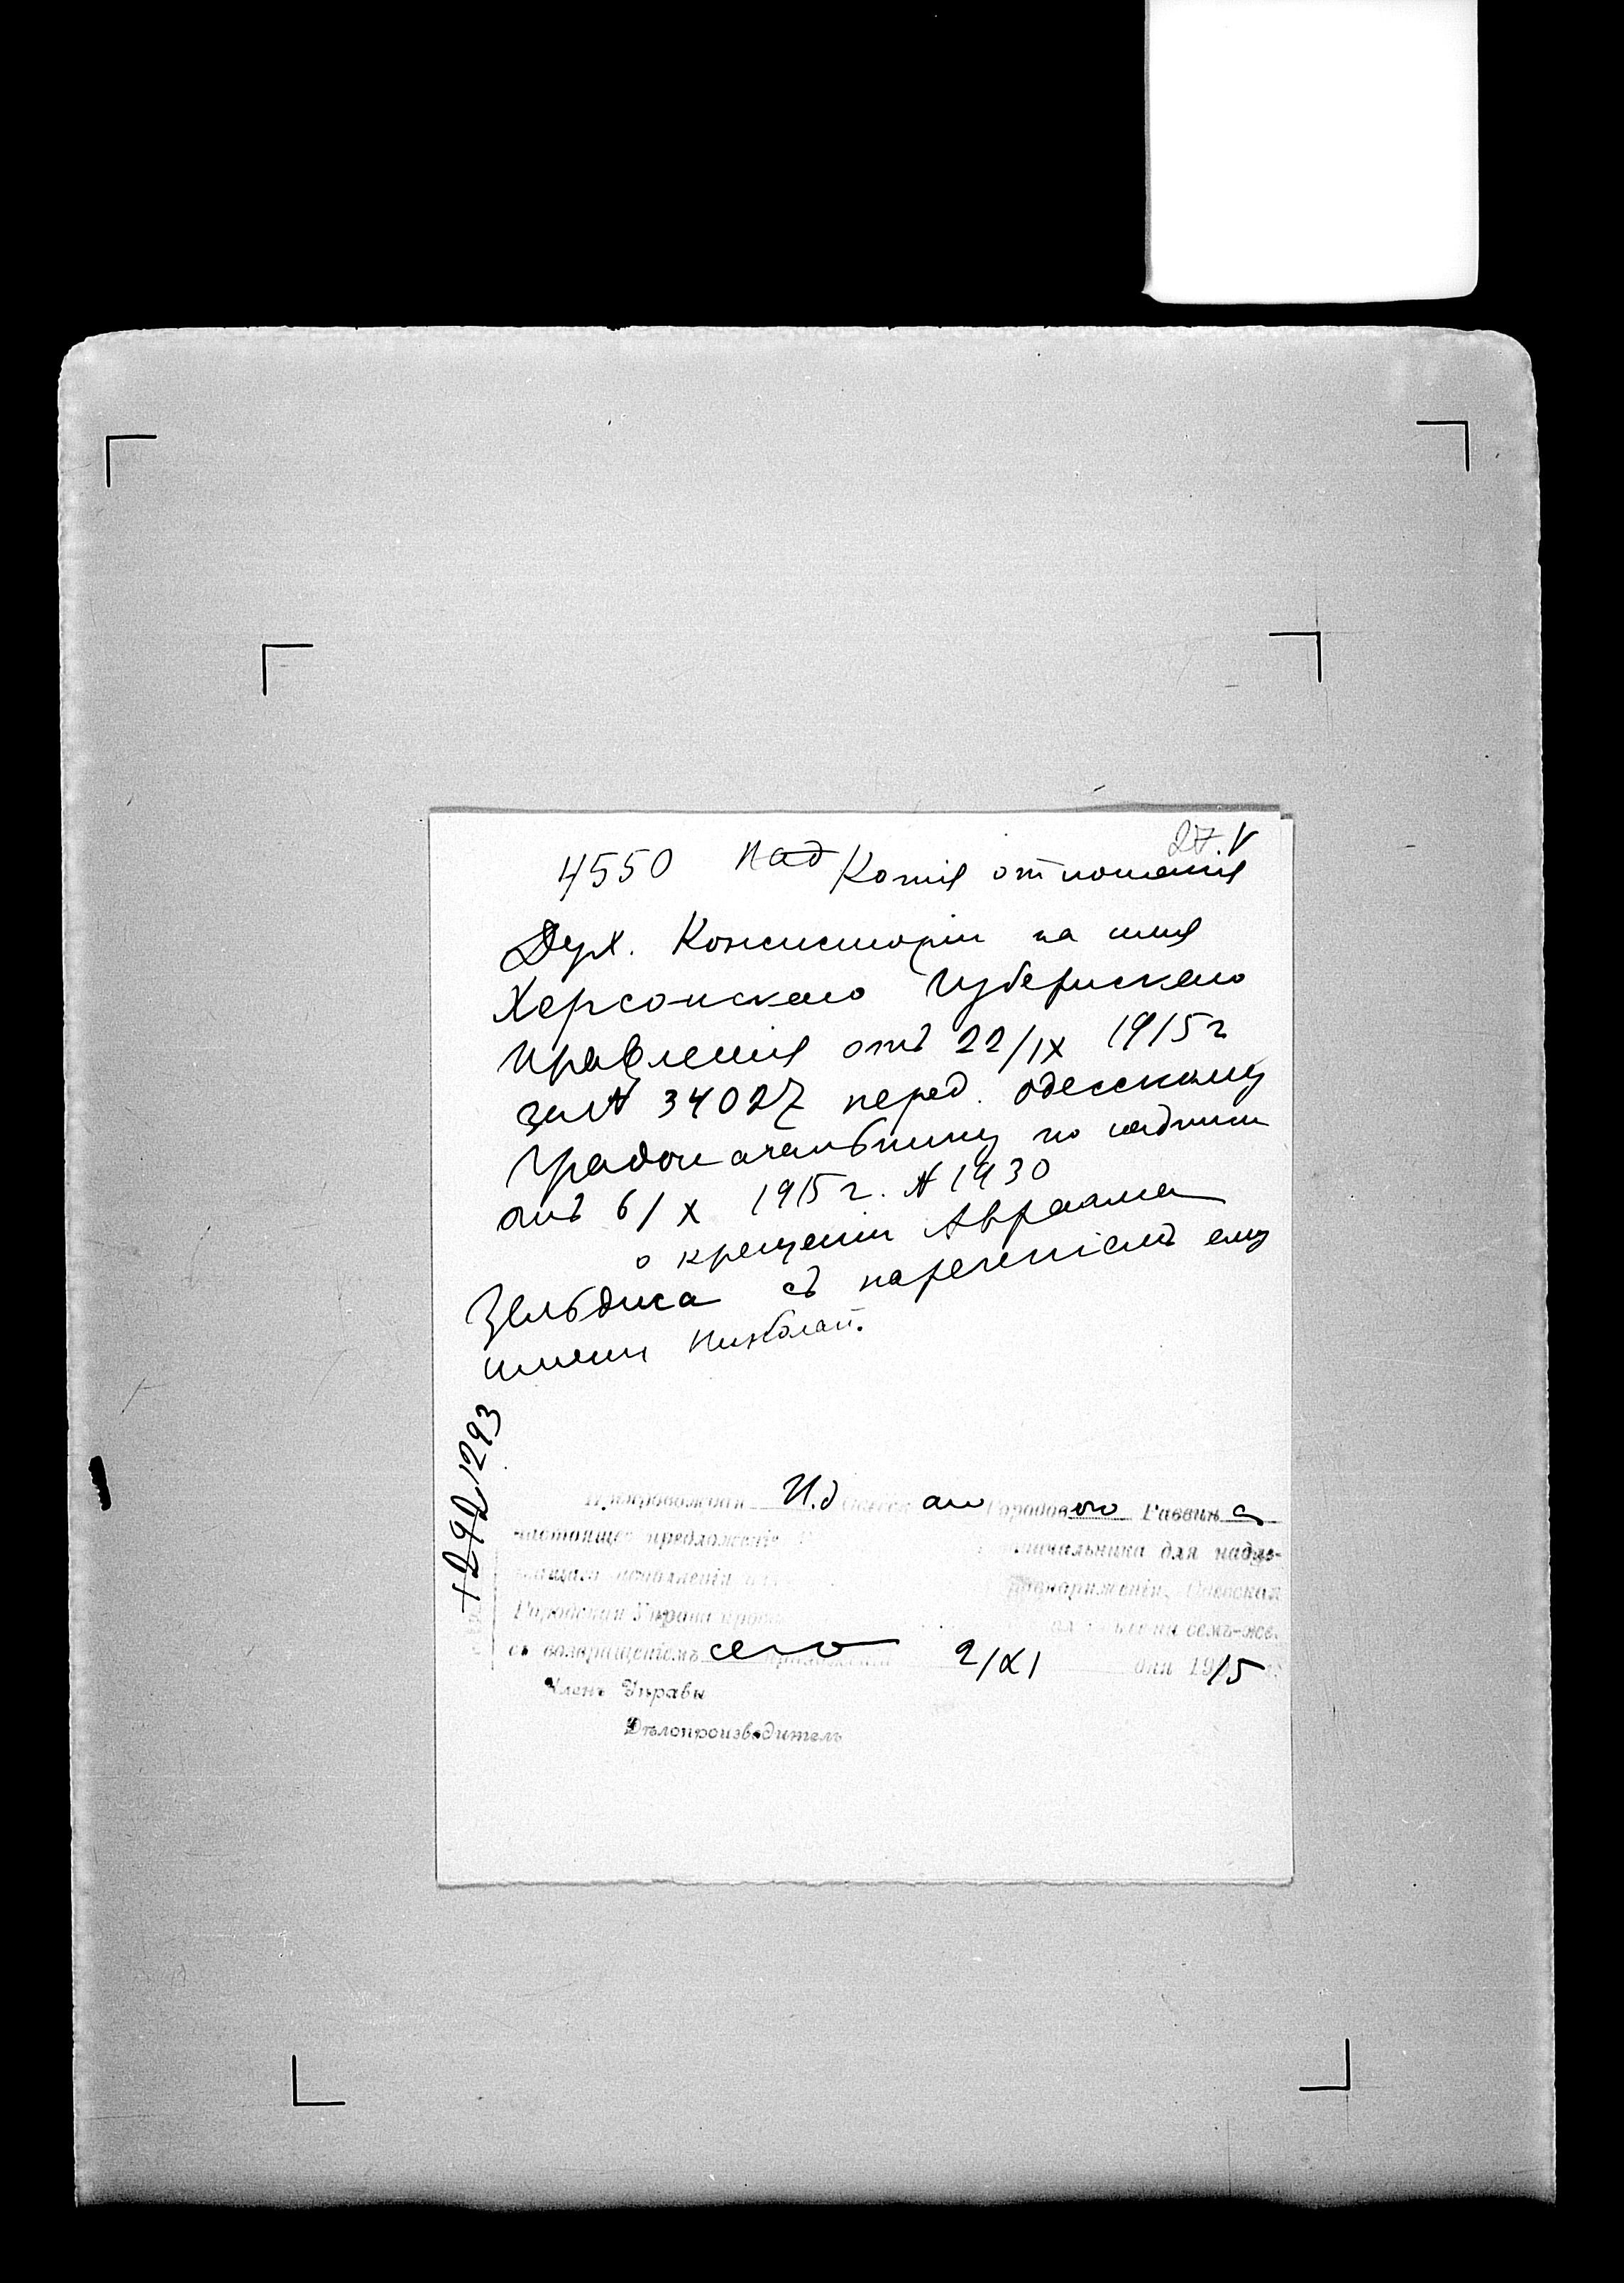 27.V
4550 над Копія отношенія
Дух. Консисторіи на имя
Херсонскаго Губернскаго
Правленія отъ 22/IX 1915 г
за № 34027 перед. Одесскому
Градоначальнику по надписи
отъ 6/X 1915 г. № 1930
о крещеніи Авраама
Зельдиса съ нареченіемъ ему
имени Николай.
1292 1293
Препровождая И.д аго Городового Раввина
настоящее предложеніе начальника для надле-
жащаго исполненія Одесская
Городская Управа
съ возвращеніемъ сего 2/XI дня 1915
Членъ Управы
Дѣлопроизводитель